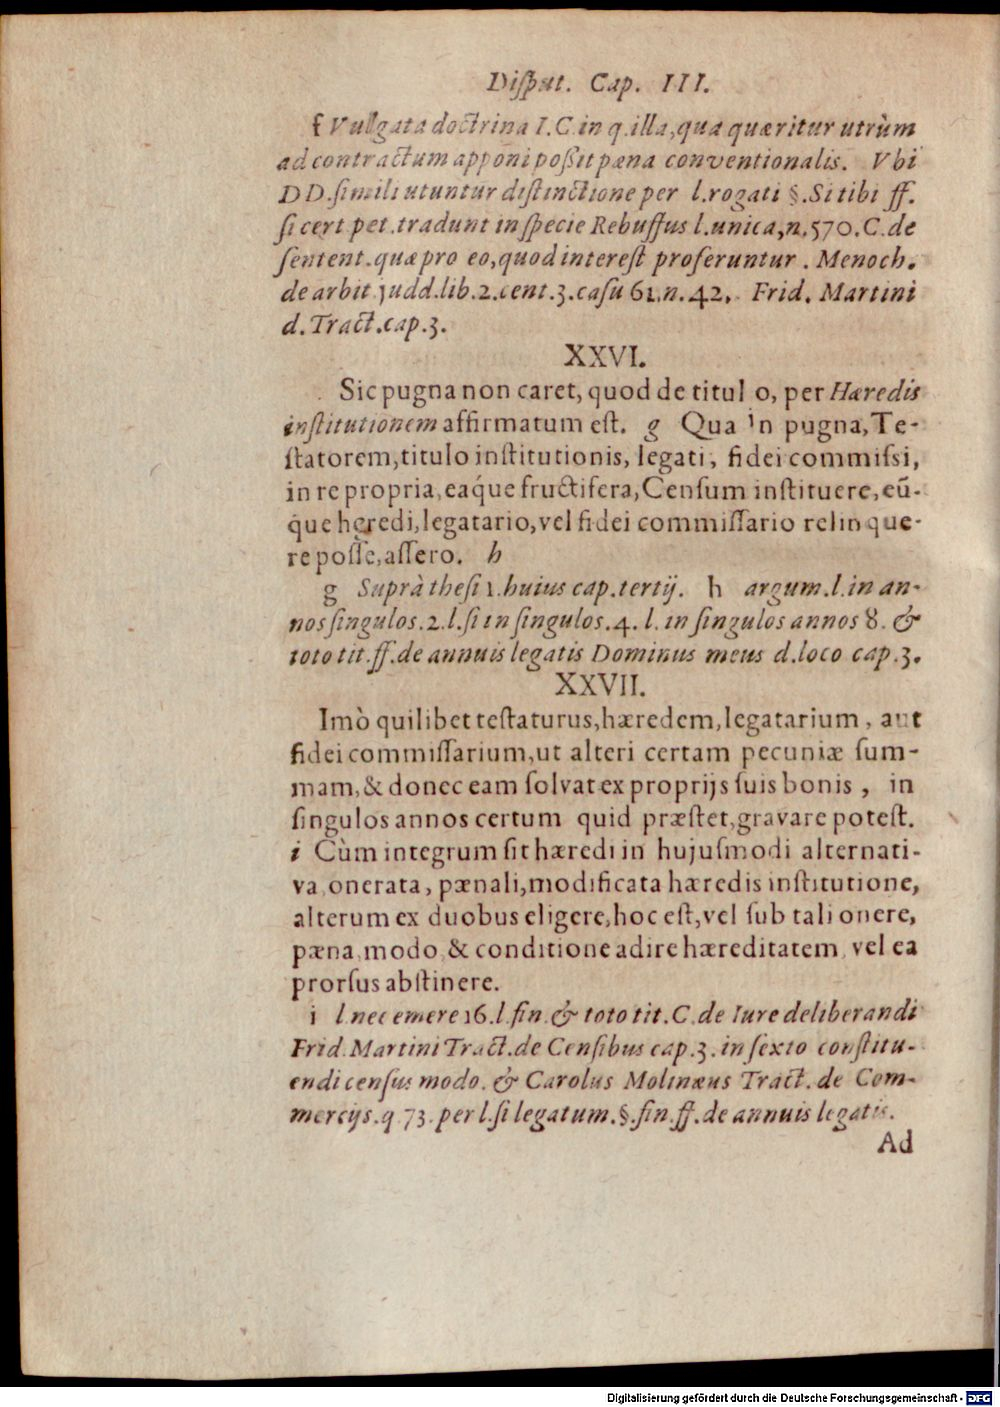 Disput. Cap. III.
f Vulgata doctrina I. C. in q. illa, qua quæritur utrùm
ad contractum apponi poßit pæna conventionalis. Vbi
DD. simili utuntur distinctione per l. rogati §. Si tibi ff.
si cert pet. tradunt in specie Rebuffus l. unica, n. 570. C. de
sentent. quæ pro eo, quod interest proferuntur. Menoch.
de arbit judd. lib. 2. cent. 3. casu 61. n. 42. Frid. Martini
d. Tract. cap. 3.
XXVI.
Sic pugna non caret, quod de titulo, per Hæredis
institutionem affirmatum est. g Qua in pugna, Te-
statorem, titulo institutionis, legati, fidei commissi,
in re propria, eaq́ue fructifera, Censum instituere, eũ-
q́ue heredi, legatario, vel fidei commissario relinque-
re posse, assero. h
g Suprà thesi 1. huius cap. tertij. h argum. l. in an-
nos singulos. 2. l. si in singulos. 4. l. in singulos annos 8. &
toto tit. ff. de annuis legatis Dominus meus d. loco cap. 3.
XXVII.
Imò quilibet testaturus, hæredem, legatarium, aut
fidei commissarium, ut alteri certam pecuniæ sum-
mam, & donec eam solvat ex proprijs suis bonis, in
singulos annos certum quid præstet, gravare potest.
i Cùm integrum sit hæredi in hujusmodi alternati-
va, onerata, pænali, modificata hæredis institutione,
alterum ex duobus eligere, hoc est, vel sub tali onere,
pæna, modo, & conditione adire hæreditatem, vel ea
prorsus abstinere.
i l. nec emere 16. l. fin. & toto tit. C. de Iure deliberandi
Frid. Martini Tract. de Censibus cap. 3. in sexto constitu-
endi census modo. & Carolus Molinæus Tract. de Com-
mercijs. q. 73. per l. si legatum. §. fin. ff. de annuis legatis.
Ad
Digitalisierung gefördert durch die Deutsche Forschungsgemeinschaft - DFG